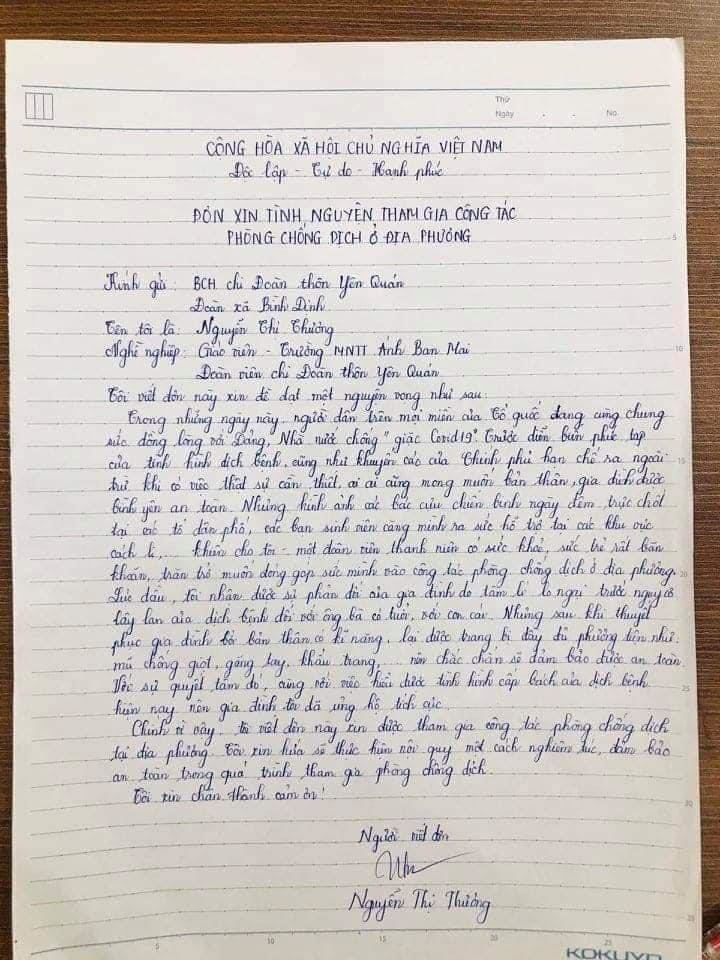 Thứ
Ngày . . No.
CỘNG HÒA XÃ HỘI CHỦ NGHĨA VIỆT NAM
Độc lập - Tự do - Hạnh phúc
ĐƠN XIN TÌNH NGUYỆN THAM GIA CÔNG TÁC
PHÒNG CHỐNG DỊCH Ở ĐỊA PHƯƠNG
5
Kính gửi: BCH chi Đoàn thôn Yên Quán
Đoàn xã Bình Định
Tên tôi là: Nguyễn Thị Thương
Nghề nghiệp: Giáo viên - Trường MNTT Ánh Ban Mai
10
Đoàn viên chi Đoàn thôn Yên Quán
Tôi viết đơn này xin đề đạt một nguyện vọng như sau:
Trong những ngày này, người dân trên mọi miền của Tổ quốc đang cùng chung
sức đồng lòng với Đảng, Nhà nước chống "giặc Covid19". Trước diễn biến phức tạp
của tình hình dịch bệnh, cũng như khuyến cáo của Chính phủ hạn chế ra ngoài
15
trừ khi có việc thật sự cần thiết, ai ai cũng mong muốn bản thân, gia đình được
bình yên an toàn. Những hình ảnh các bác cựu chiến binh ngày đêm trực chốt
tại các tổ dân phố, các bạn sinh viên căng mình ra sức hỗ trợ tại các khu vực
cách li,... khiến cho tôi - một đoàn viên thanh niên có sức khoẻ, sức trẻ rất băn
khoăn, trăn trở muốn đóng góp sức mình vào công tác phòng chống dịch ở địa phương.
20
Lúc đầu, tôi nhận được sự phản đối của gia đình do tâm lí lo nghĩ trước nguy cơ
lây lan của dịch bệnh đối với ông bà có tuổi, với con cái. Nhưng sau khi thuyết
phục gia đình bởi bản thân có kĩ năng, lại được trang bị đầy đủ phương tiện như
mũ chống giọt, găng tay, khẩu trang,... nên chắc chắn sẽ đảm bảo được an toàn.
Với sự quyết tâm đó, cùng với việc hiểu được tình hình cấp bách của dịch bệnh
25
hiện nay nên gia đình tôi đã ủng hộ tích cực.
Chính vì vậy, tôi viết đơn này xin được tham gia công tác phòng chống dịch
tại địa phương. Tôi xin hứa sẽ thực hiện nội quy một cách nghiêm túc, đảm bảo
an toàn trong quá trình tham gia phòng chống dịch.
Tôi xin chân thành cảm ơn!
30
Người viết đơn
Nguyễn Thị Thương
35
5 10 15 20 25
KOKUYO